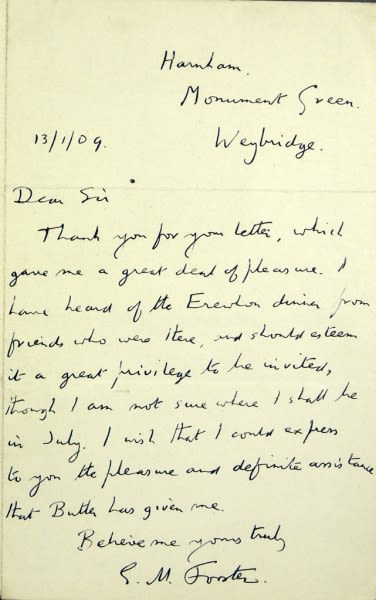 Harnham,
Monument Green.
13/1/09.
Weybridge.
Dear Sir
Thank you for your letter, which
gave me a great deal of pleasure. I
have heard of the Erewhon dinner from
friends who were there, and should esteem
it a great privilege to be invited,
though I am not sure where I shall be
in July. I wish that I could express
to you the pleasure and definite assistance
that Butler has given me.
Believe me yours truly
E. M. Forster.